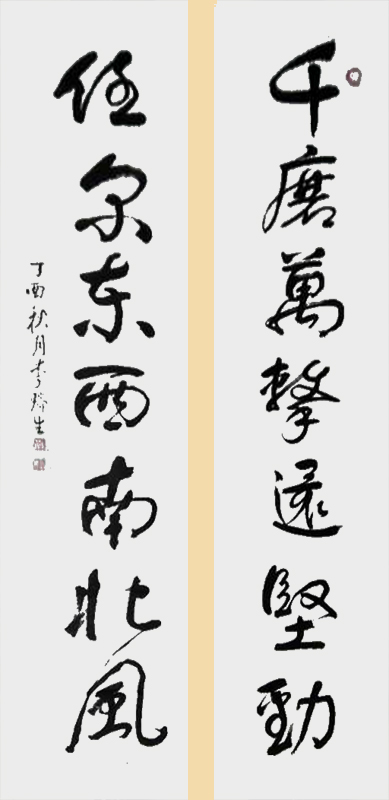 千磨萬擊還堅勁
任尔东西南北風
丁酉秋月李瑞生